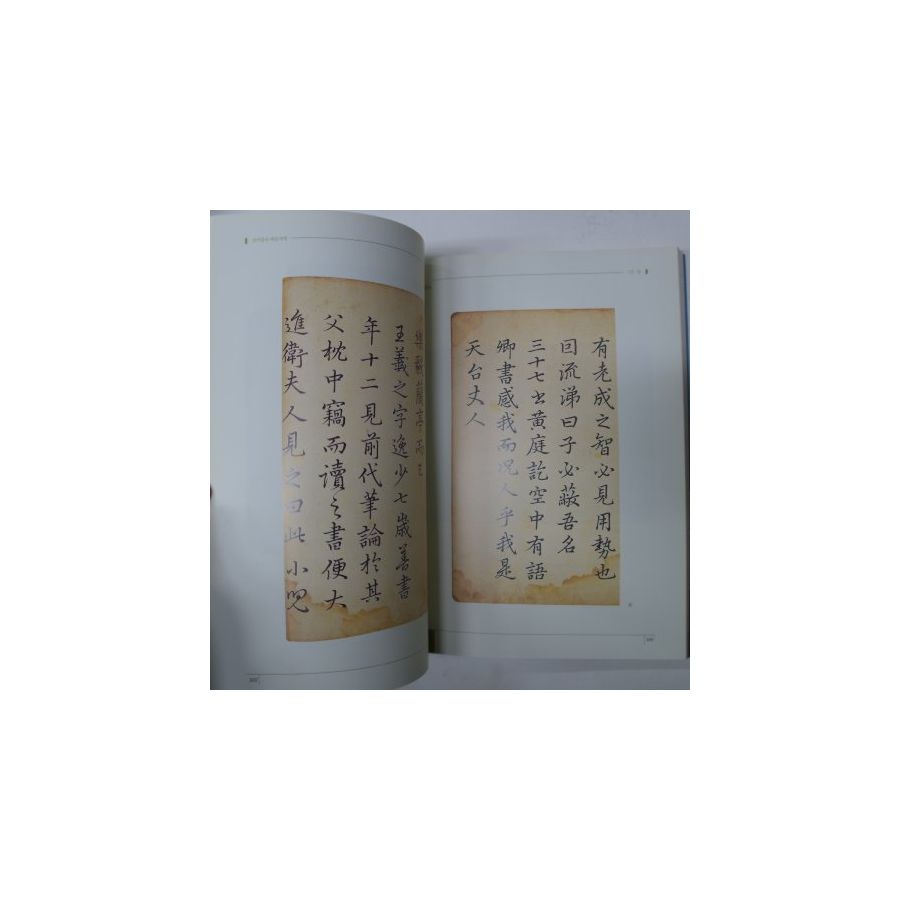 王羲之字逸少七歲善書
年十二見前代筆論於其
父枕中竊而讀之書便大
進衛夫人見之曰此小兒
有老成之智必見用勢也
因流涕曰子必蔽吾名
三十七書黃庭訖空中有語
卿書感我而況人乎我是
天台丈人